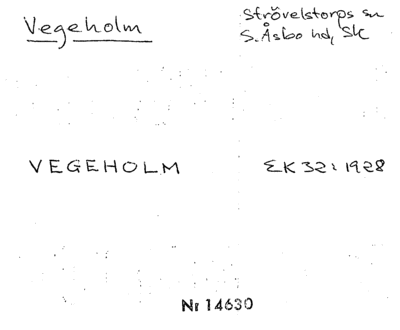 Vegeholm
Strövelstorps sn
S. Åsbo hd, Sk
VEGEHOLM
EK 32: 1928
Nr 14630